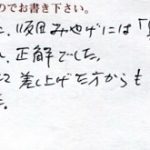 のでお書き下さい。
に、順風みやげには「
、正解でした。
て差し上げた方からも